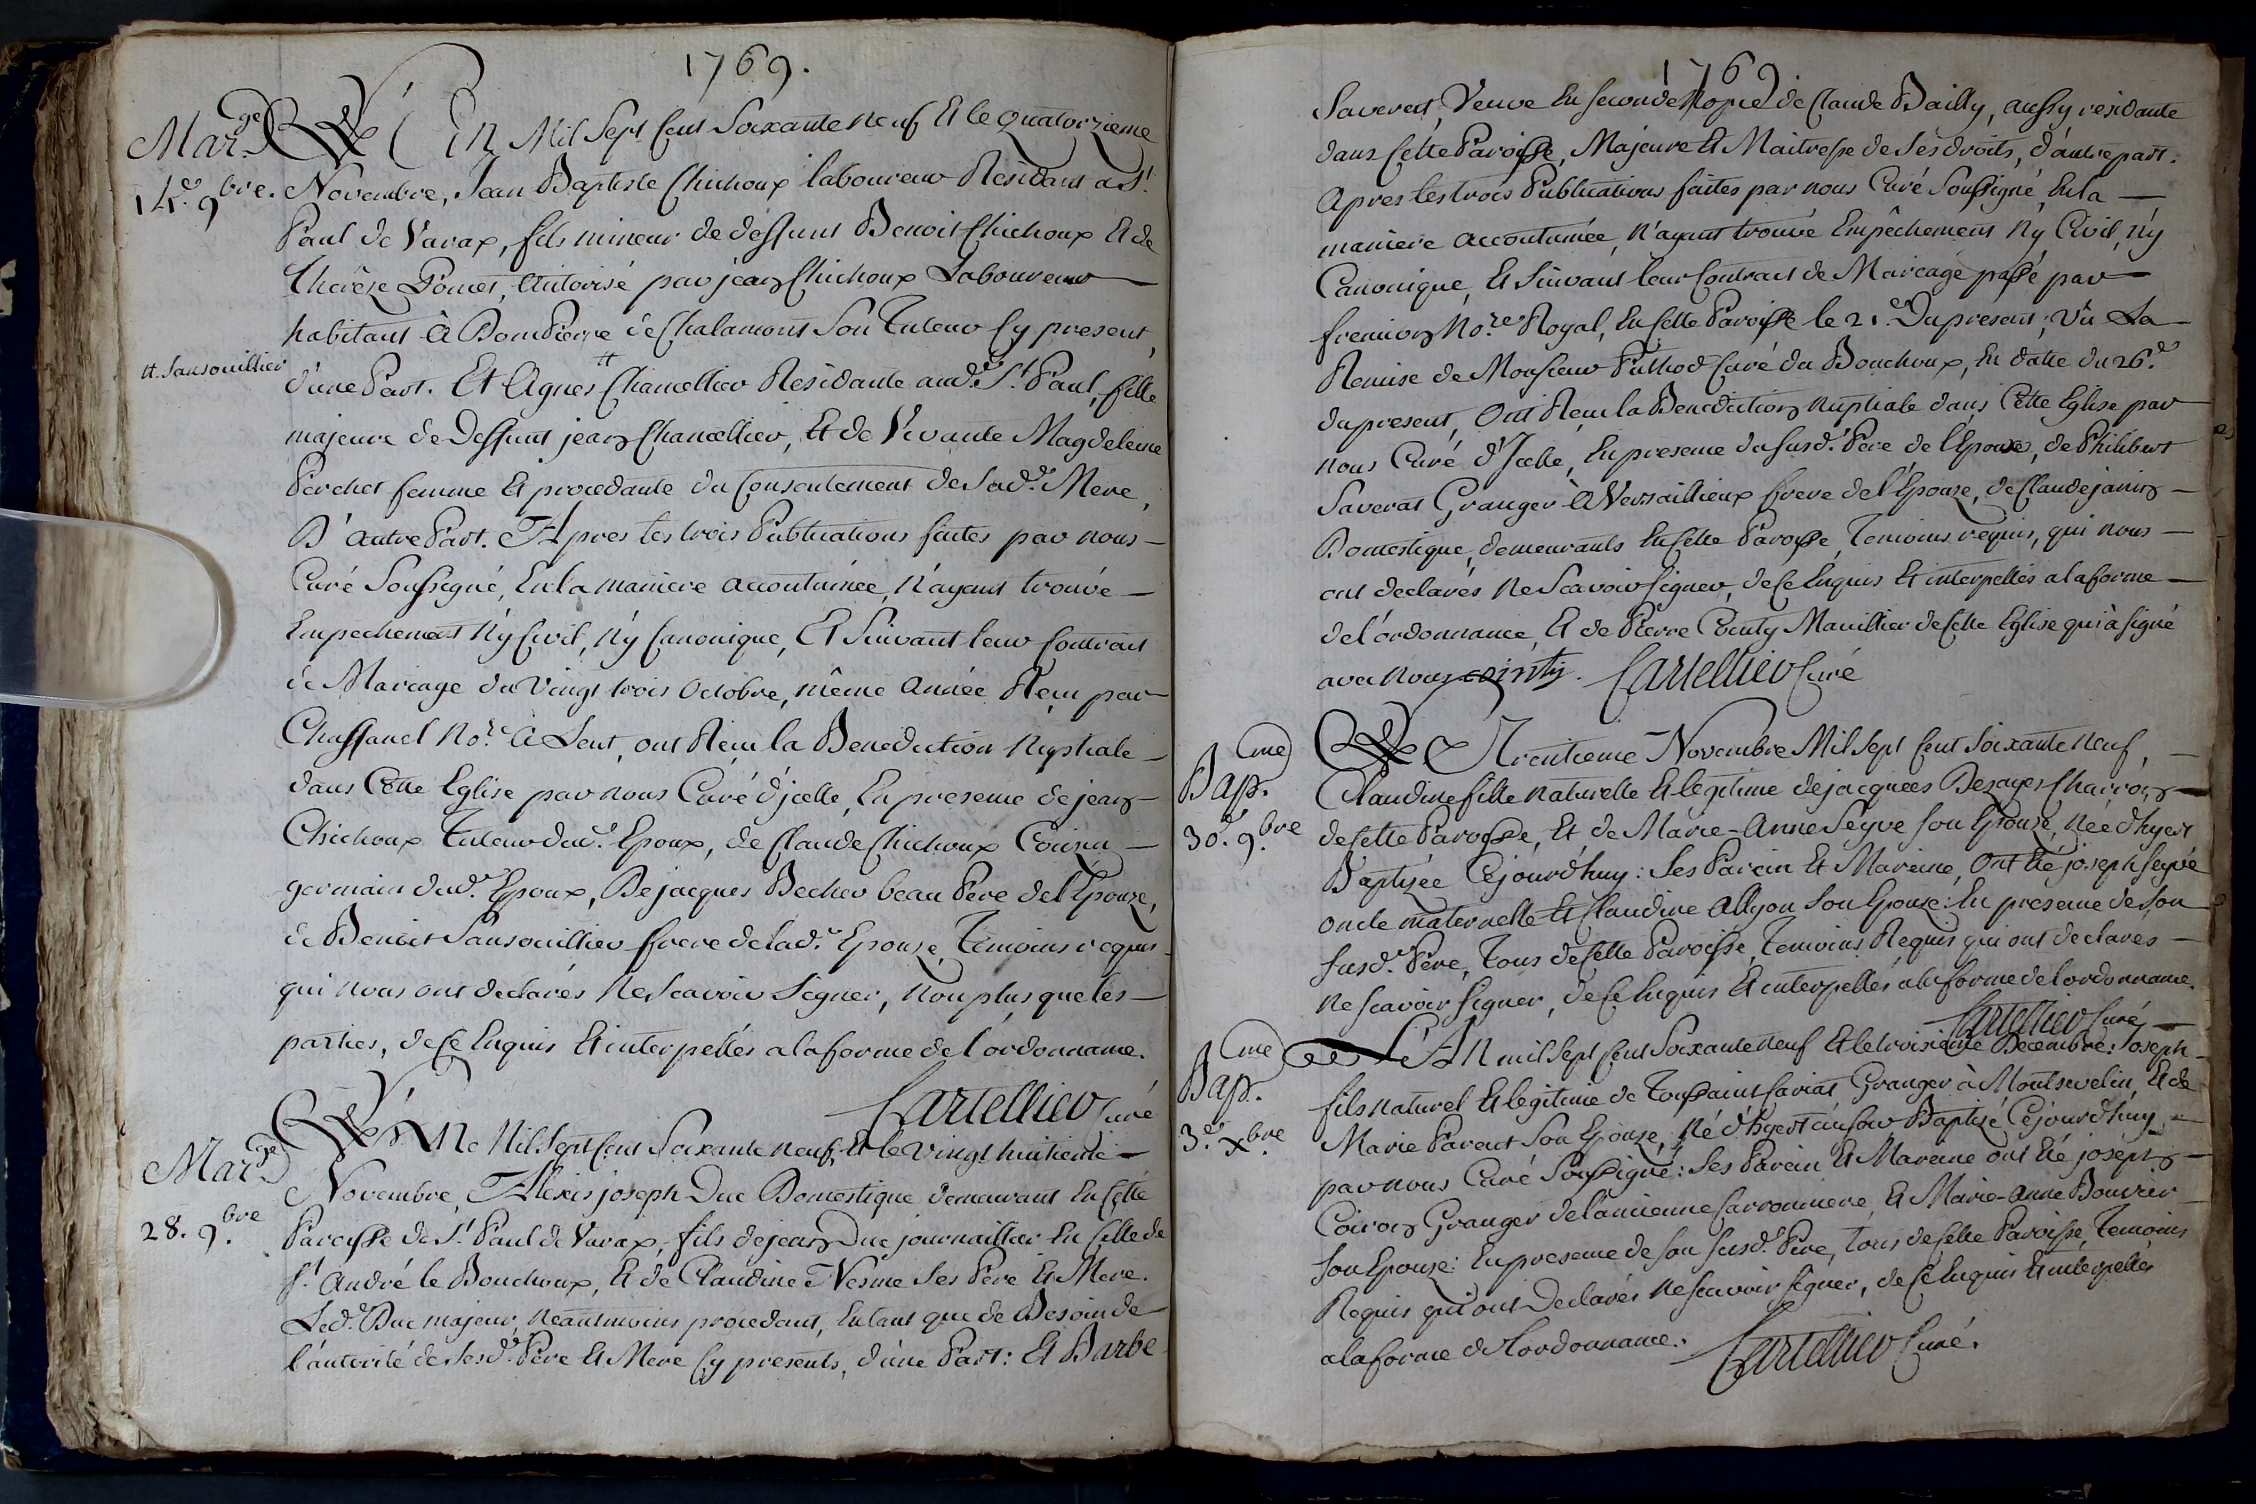 1769.
Mar.ge L'An Mil Sept Cent Soixante neuf Et le quatorzieme
14.e 9.bre. Novembre, Jean Baptiste Chichoux laboureur Résidant a St.
Paul de Varax, fils mineur de deffunt Benoit Chichoux Et de
Thérèze Pomet, Autorisé par jean Chichoux Laboureur
habitant à Dompierre de Chalamont Son Tuteur Cy present,
#. Sansouillier
d'une Part. Et Agnes # Chancellier Residante aud.t St. Paul, fille
majeure de Deffunt jean Chancellier, Et de Vivante Magdeleine
Perchet femme Et procedante du Consentement de Sad.e Mere,
D'autre Part. Apres les trois Publications faites par nous
Curé Soussigné, En la maniere accoutumée, N'ayant trouvé
Empechement Ny Civil, Ny Canonique, Et Suivant leur Contract
de Mariage du Vingt trois Octobre, même Année Reçu par
Chassanel No.re A Lent, ont Reçu la Benediction Nuptiale
dans Cette Eglise par nous Curé d'jcelle, En presence de jean
Chichoux Tuteur dud.t Epoux, de Claude Chichoux Cousin
germain dud.t Epoux, De jacques Becher beau Pere de l'Epouze,
de Benoit Sansouillier frere de lad.e Epouze, Temoins requis
qui nous ont declarés Ne Scavoir Signer, Non plus que les
parties, de Ce Enquis Et interpellés a la forme de l'ordonnance.
Cartellier Curé
Mar.ge L'An Mil Sept Cent Soixante neuf, Et le Vingt huitieme
28. 9.bre Novembre, Alexis joseph Duc Domestique demeurant En Cette
Paroisse de St. Paul de Varax, fils de jean Duc journaillier En Celle de
St. André le Bouchoux, Et de Claudine Vesme Ses Pere Et Mere.
Led.t Duc majeur, Neantmoins procedant, En tant que de Besoin de
l'autorité de Sesd.ts Pere Et Mere Cy presents, d'une Part: Et Barbe
1769
Saverat, Veuve En Seconde Noces de Claude Bailly, aussy residante
dans Cette Paroisse, Majeure Et Maitresse de Ses droits, d'autre part.
Apres les trois Publications faites par nous Curé Soussigné, En la
maniere accoutumée, N'ayant trouvé Empêchement Ny Civil, Ny
Canonique, Et Suivant leur Contract de Mariage passé par
fremion No.re Royal, En Cette Paroisse le 21.e Du present; Vu La
Remise de Monsieur Puthod Curé du Bouchoux, En datte du 26.e
du present, Ont Reçu la Benediction nuptiale dans Cette Eglise par
nous Curé d'Jcelle, En presence du Susd.t Pere de l'Epoux, de Philibert
Saverat Granger A Versaillieux frere de l'Epouze, de Claude janin
Domestique, demeurants En Cette Paroisse, Temoins requis, qui nous
ont declarés Ne Scavoir Signer, de Ce Enquis Et interpellés a la forme
de l'ordonnance, Et de Pierre Cointy Manillier de Cette Eglise qui à Signé
avec nous Cointy. Cartellier Curé
Bap.me Le Trentieme Novembre Mil Sept Cent Soixante neuf,
Claudine fille naturelle Et legitime de jacques Dezayes Charron
30.e 9.bre de Cette Paroisse, Et de Marie-Anne Seyve Son Epouze, Née d'hyer
Baptizée Cejourd'huy: Ses Parein Et Mareine, Ont Eté joseph Seyve
oncle maternelle Et Claudine Allyon Son Epouze: En presence de Son
Susd.t Pere, Tous de Cette Paroisse, Temoins Requis qui ont declarés
Ne Scavoir Signer, de Ce Enquis Et interpellés a la forme de l'ordonnance.
Cartellier Curé
Bap.me L'An mil Sept Cent Soixante neuf Et le troisieme Decembre: Joseph
fils Naturel Et legitime de Toussaint Cariat, Granger à Montsevelin, Et de
3.e X.bre Marie Parent Son Epouze, Né d'hyer au Soir Baptizé Cejourd'huy
par nous Curé Soussigné: Ses Parein Et Mareine ont Eté joseph
Coiron Granger de l'ancienne Carronniere, Et Marie-Anne Bouvier
Son Epouze: En presence de Son Susd.t Pere, Tous de Cette Paroisse, Temoins
Requis qui ont Declarés Ne Scavoir Signer, de Ce Enquis Et interpellés
a la forme de l'ordonnance. Cartellier Curé.